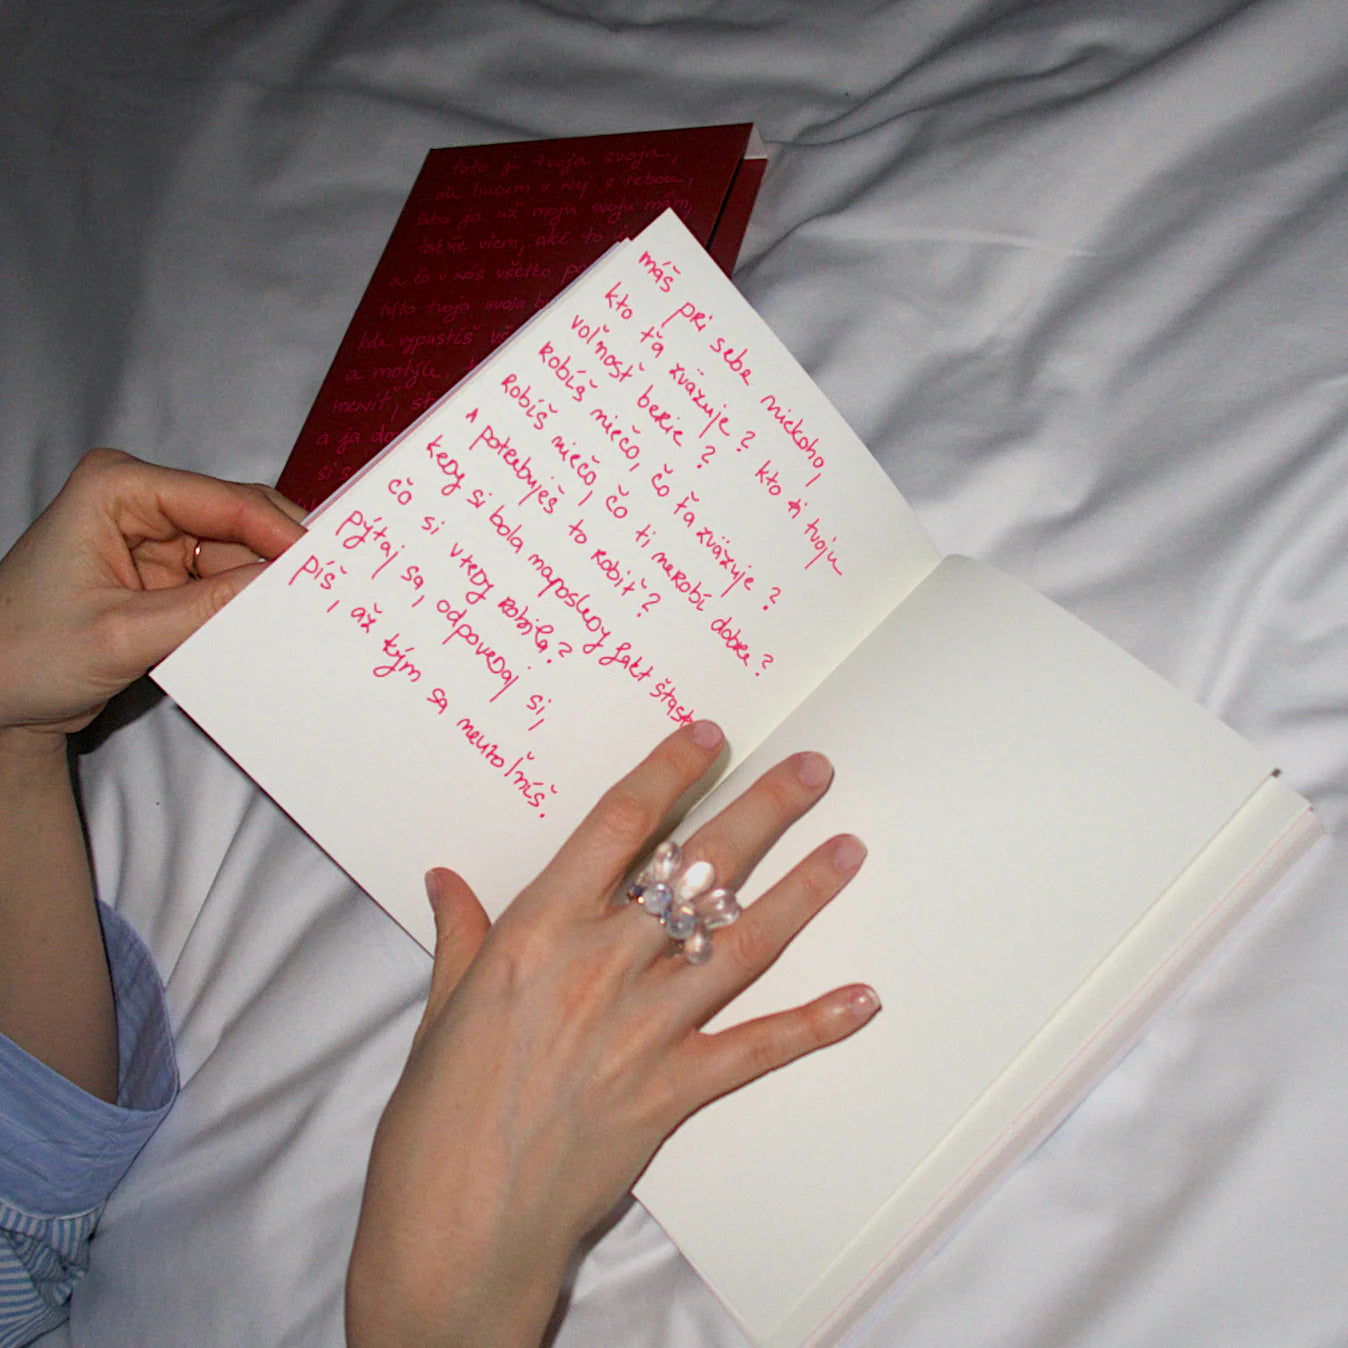 toto je tvoja svoja,
ale budem v nej s tebou,
lebo ja už moju svoju mám,
takže viem, aké to
a čo v nás všetko
táto tvoja svoja
kde vypustíš
a motýle.
meniť,
a ja
máš pri sebe niekoho,
kto ťa zväzuje? kto ti tvoju
voľnosť berie?
robíš niečo, čo ťa zväzuje?
robíš niečo, čo ti nerobí dobre?
a potrebuješ to robiť?
kedy si bola naposledy fakt šťast
čo si vtedy robila?
pýtaj sa, odpovedaj si,
píš, až kým sa neuvoľníš.